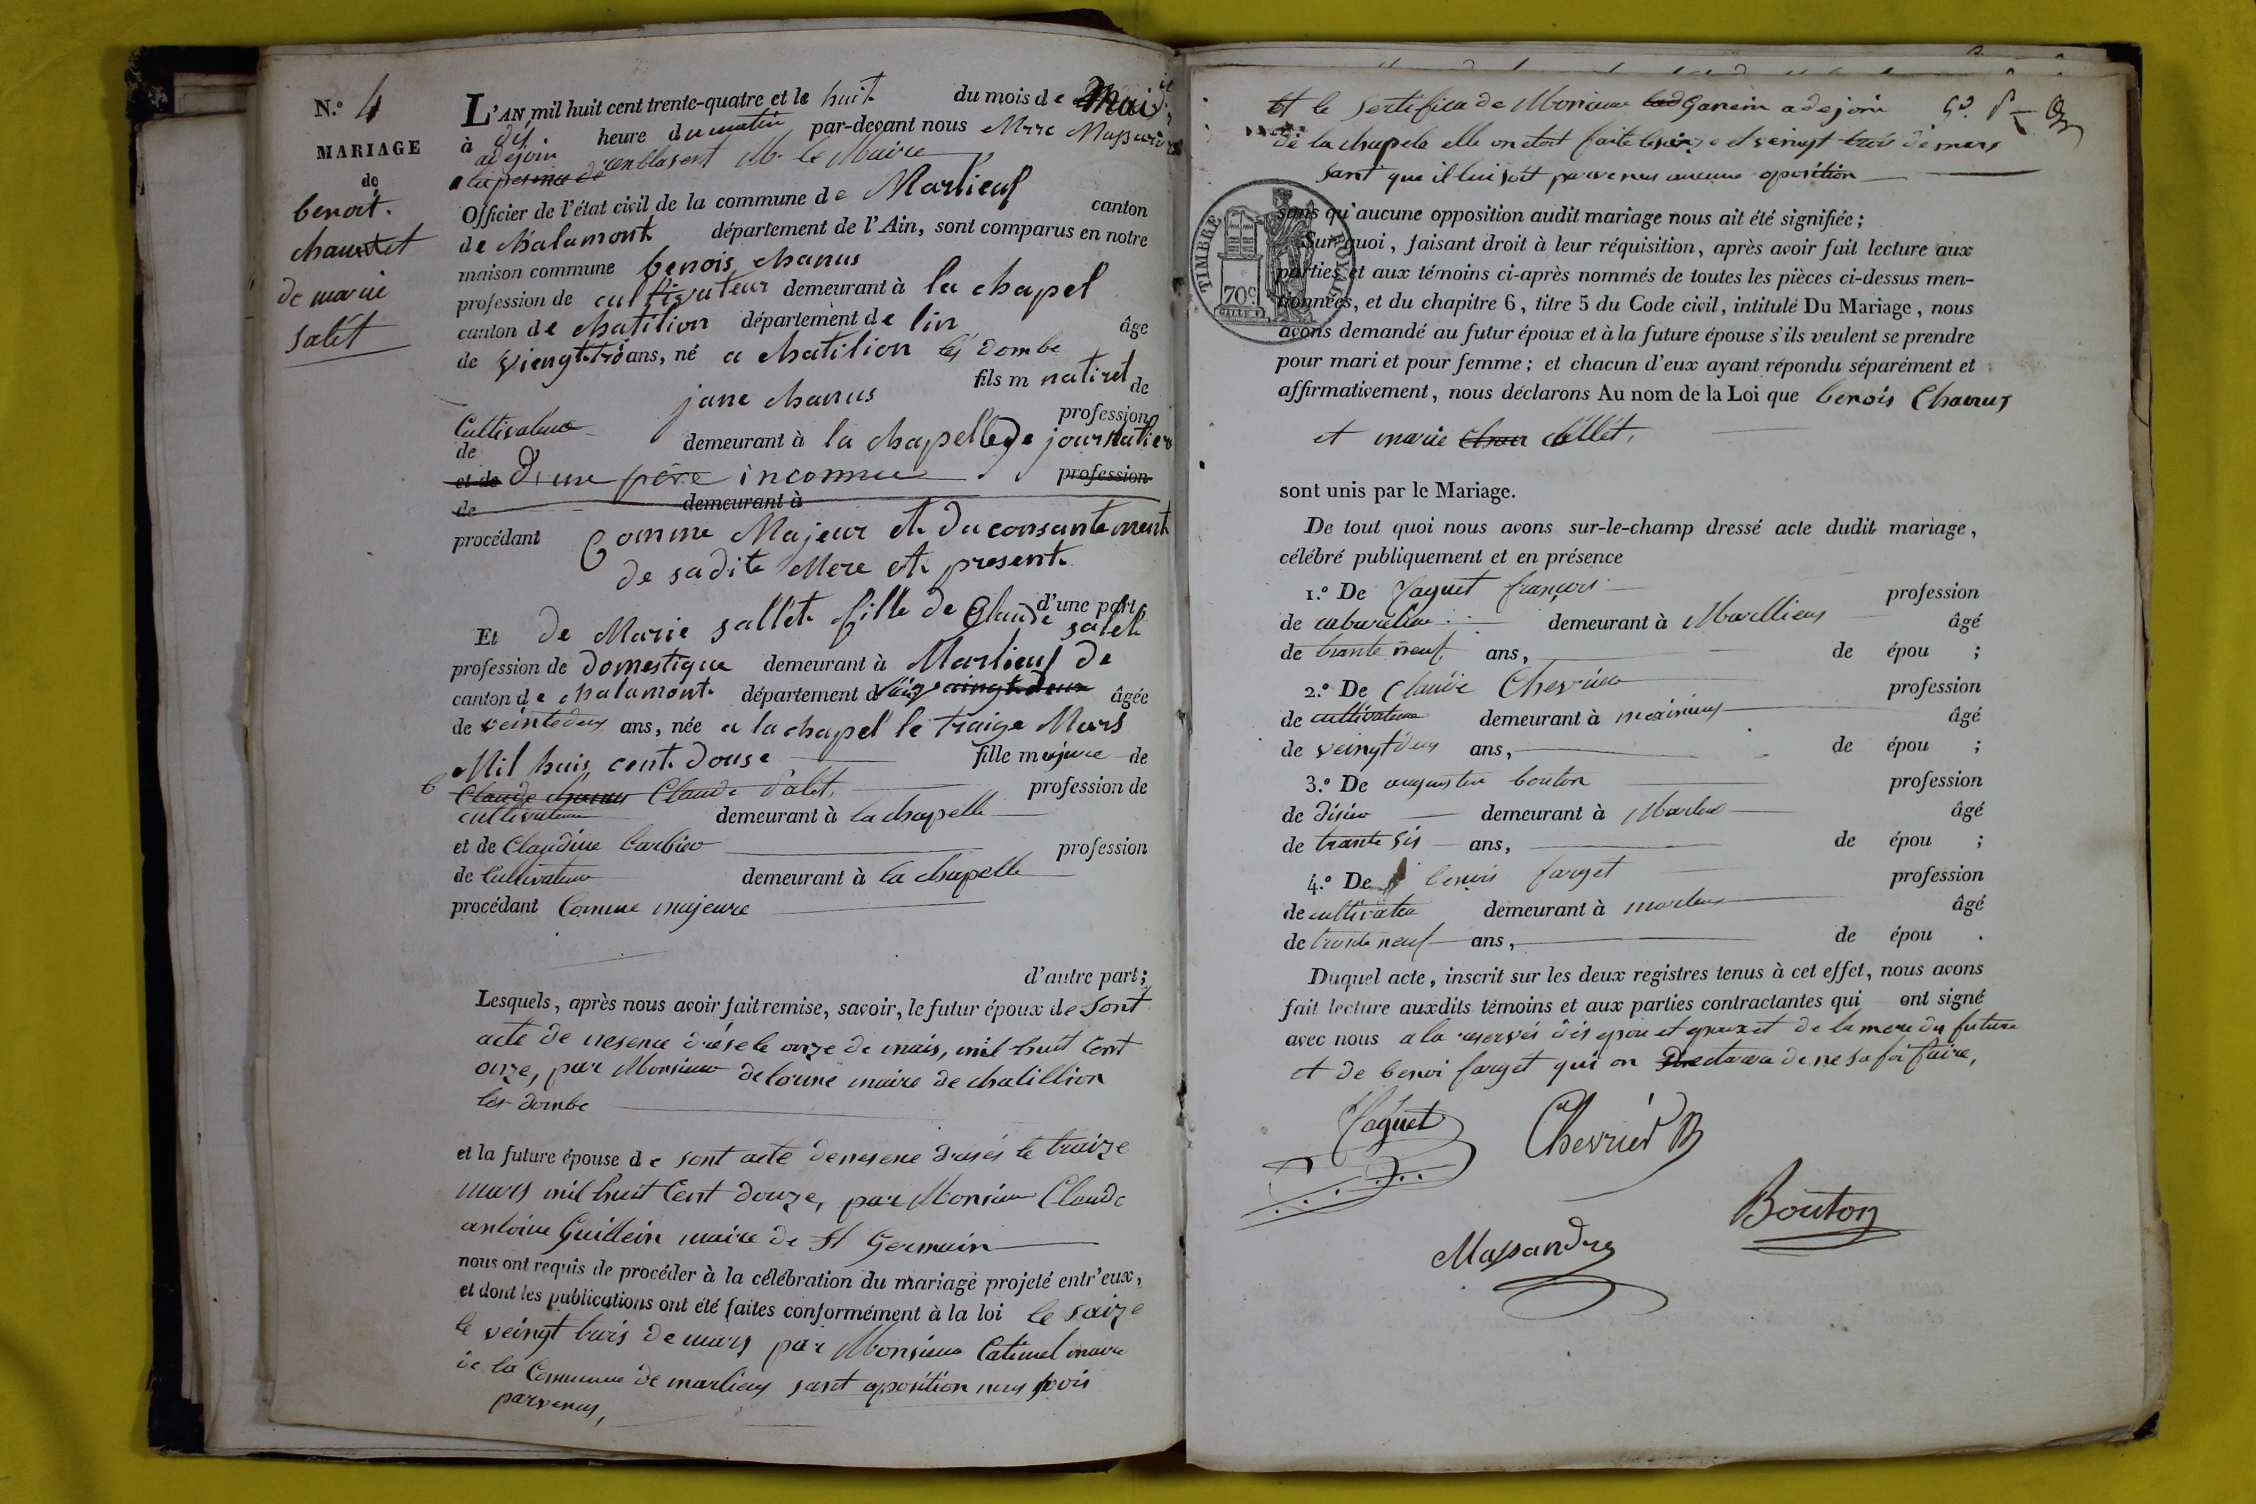 N.º 4
MARIAGE
de
benoit
chanut
de marie
salét
L'AN mil huit cent trente-quatre et le huit du mois de Mai
à dix heure du matin par-devant nous Mrre Massandre
adejoin remblasent M. le Maire
Officier de l'état civil de la commune de Marlieus canton
de chalamont département de l'Ain, sont comparus en notre
maison commune benois chanus
profession de cultivateur demeurant à la chapel
canton de chatilion département de lin âge
de viengt trois ans, né a chatilion les dombe
fils m natirel de
jane chanus profession
de Cultivateur demeurant à la chapelle de journalier
et de d'une père inconnue profession
de demeurant à
procédant Comme Majeur et du consantement
de sadite Mere et present
d'une part,
Et de Marie sallét fille de Claude salét
profession de domestique demeurant à Marlieus de
canton de chalamont département d Lain vaingt deux âgée
de veintedeus ans, née a la chapel le traige Mars
Mil huis cent douse fille majeure de
Claude chanus Claude Salet, profession de
cultivateur demeurant à la chapelle
et de Claudine barbier profession
de Cultivateur demeurant à la chapelle
procédant Comme majeure
d'autre part;
Lesquels, après nous avoir fait remise, savoir, le futur époux de sont
acte de nesence drésé le onze de mais, mil huit cent
onze, par Monsieur delorme maire de chatillion
les dombe
et la future épouse de sont acte denesence drésés le traize
mars mil huit Cent douze, par Monsieur Claude
antoine Guillein maire de St Germain
nous ont requis de procéder à la célébration du mariage projeté entr'eux,
et dont les publications ont été faites conformément à la loi le saize
le veingt trois de mars par Monsieur Catimel maire
de la Commune de marlieus sant oposition nous sois
parvenus,
Et le sertifica de Monsieur Ganein adejoin
de la chapele elle on etort faite le saize et veingt trois de mars
sant que il lui soit parvenus aucune oposition
TIMBRE ROYAL
70c
sans qu'aucune opposition audit mariage nous ait été signifiée;
Sur quoi, faisant droit à leur réquisition, après avoir fait lecture aux
parties et aux témoins ci-après nommés de toutes les pièces ci-dessus men-
tionnées, et du chapitre 6, titre 5 du Code civil, intitulé Du Mariage, nous
avons demandé au futur époux et à la future épouse s'ils veulent se prendre
pour mari et pour femme; et chacun d'eux ayant répondu séparément et
affirmativement, nous déclarons Au nom de la Loi que benois Chanus
et marie Chan séllét,
sont unis par le Mariage.
De tout quoi nous avons sur-le-champ dressé acte dudit mariage,
célébré publiquement et en présence
1.º De Jaguet françois profession
de cabaretier demeurant à Marllieus âgé
de trante neuf, ans, de épou ;
2.º De Claude Chevrier profession
de cultivateur demeurant à meximieus âgé
de veingt deus ans, de épou ;
3.º De augustin bouton profession
de disier demeurant à Marlieus âgé
de trante sis ans, de épou ;
4.º De benois farget profession
de cultivateur demeurant à marlieus âgé
de trante neuf ans, de épou .
Duquel acte, inscrit sur les deux registres tenus à cet effet, nous avons
fait lecture auxdits témoins et aux parties contractantes qui ont signé
avec nous a la reserves des epou et epouz et de la mere du future
et de benoi farget qui on declara de ne safoi faire,
Jaguet
Chevrier
Bouton
Massandre